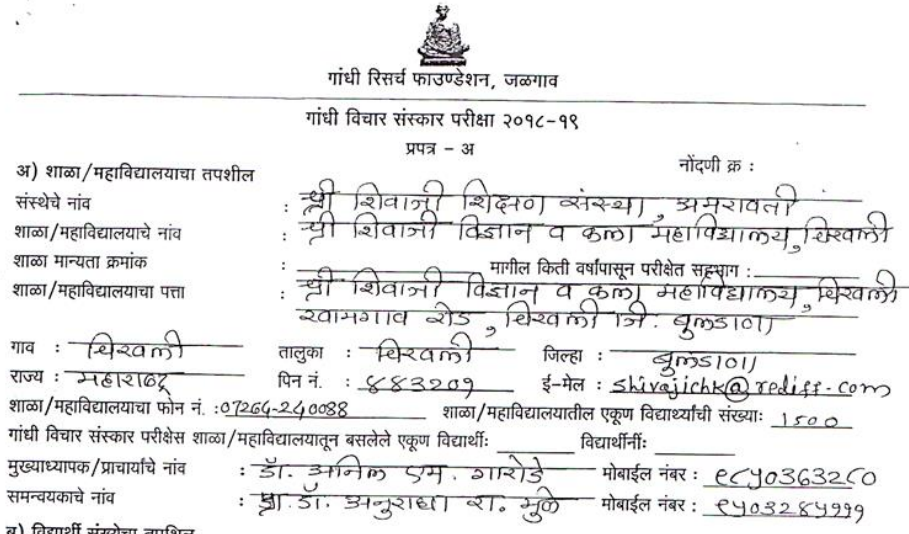 गांधी रिसर्च फाउण्डेशन, जळगाव
गांधी विचार संस्कार परीक्षा २०१८-१९
प्रपत्र - अ
नोंदणी क्र :
अ) शाळा/महाविद्यालयाचा तपशील
संस्थेचे नांव : श्री शिवाजी शिक्षण संस्था, अमरावती
शाळा/महाविद्यालयाचे नांव : श्री शिवाजी विज्ञान व कला महाविद्यालय, चिखली
शाळा मान्यता क्रमांक : मागील किती वर्षांपासून परीक्षेत सहभाग :
शाळा/महाविद्यालयाचा पत्ता : श्री शिवाजी विज्ञान व कला महाविद्यालय, चिखली
खामगाव रोड, चिखली जि. बुलडाणा
गाव : चिखली तालुका : चिखली जिल्हा : बुलडाणा
राज्य : महाराष्ट्र पिन नं. : ४४३२०१ ई-मेल : shivajichk@rediff.com
शाळा/महाविद्यालयाचा फोन नं. : 07264-240088 शाळा/महाविद्यालयातील एकूण विद्यार्थ्यांची संख्याः 1500
गांधी विचार संस्कार परीक्षेस शाळा/महाविद्यालयातून बसलेले एकूण विद्यार्थीः विद्यार्थीनींः
मुख्याध्यापक/प्राचार्यांचे नांव : डॉ. अनिल एम. गारोडे मोबाईल नंबर : ९८५०३६३२८०
समन्वयकाचे नांव : प्रा. डॉ. अनुराधा रा. मुळे मोबाईल नंबर :
ब) विद्यार्थी संख्येचा तपशिल